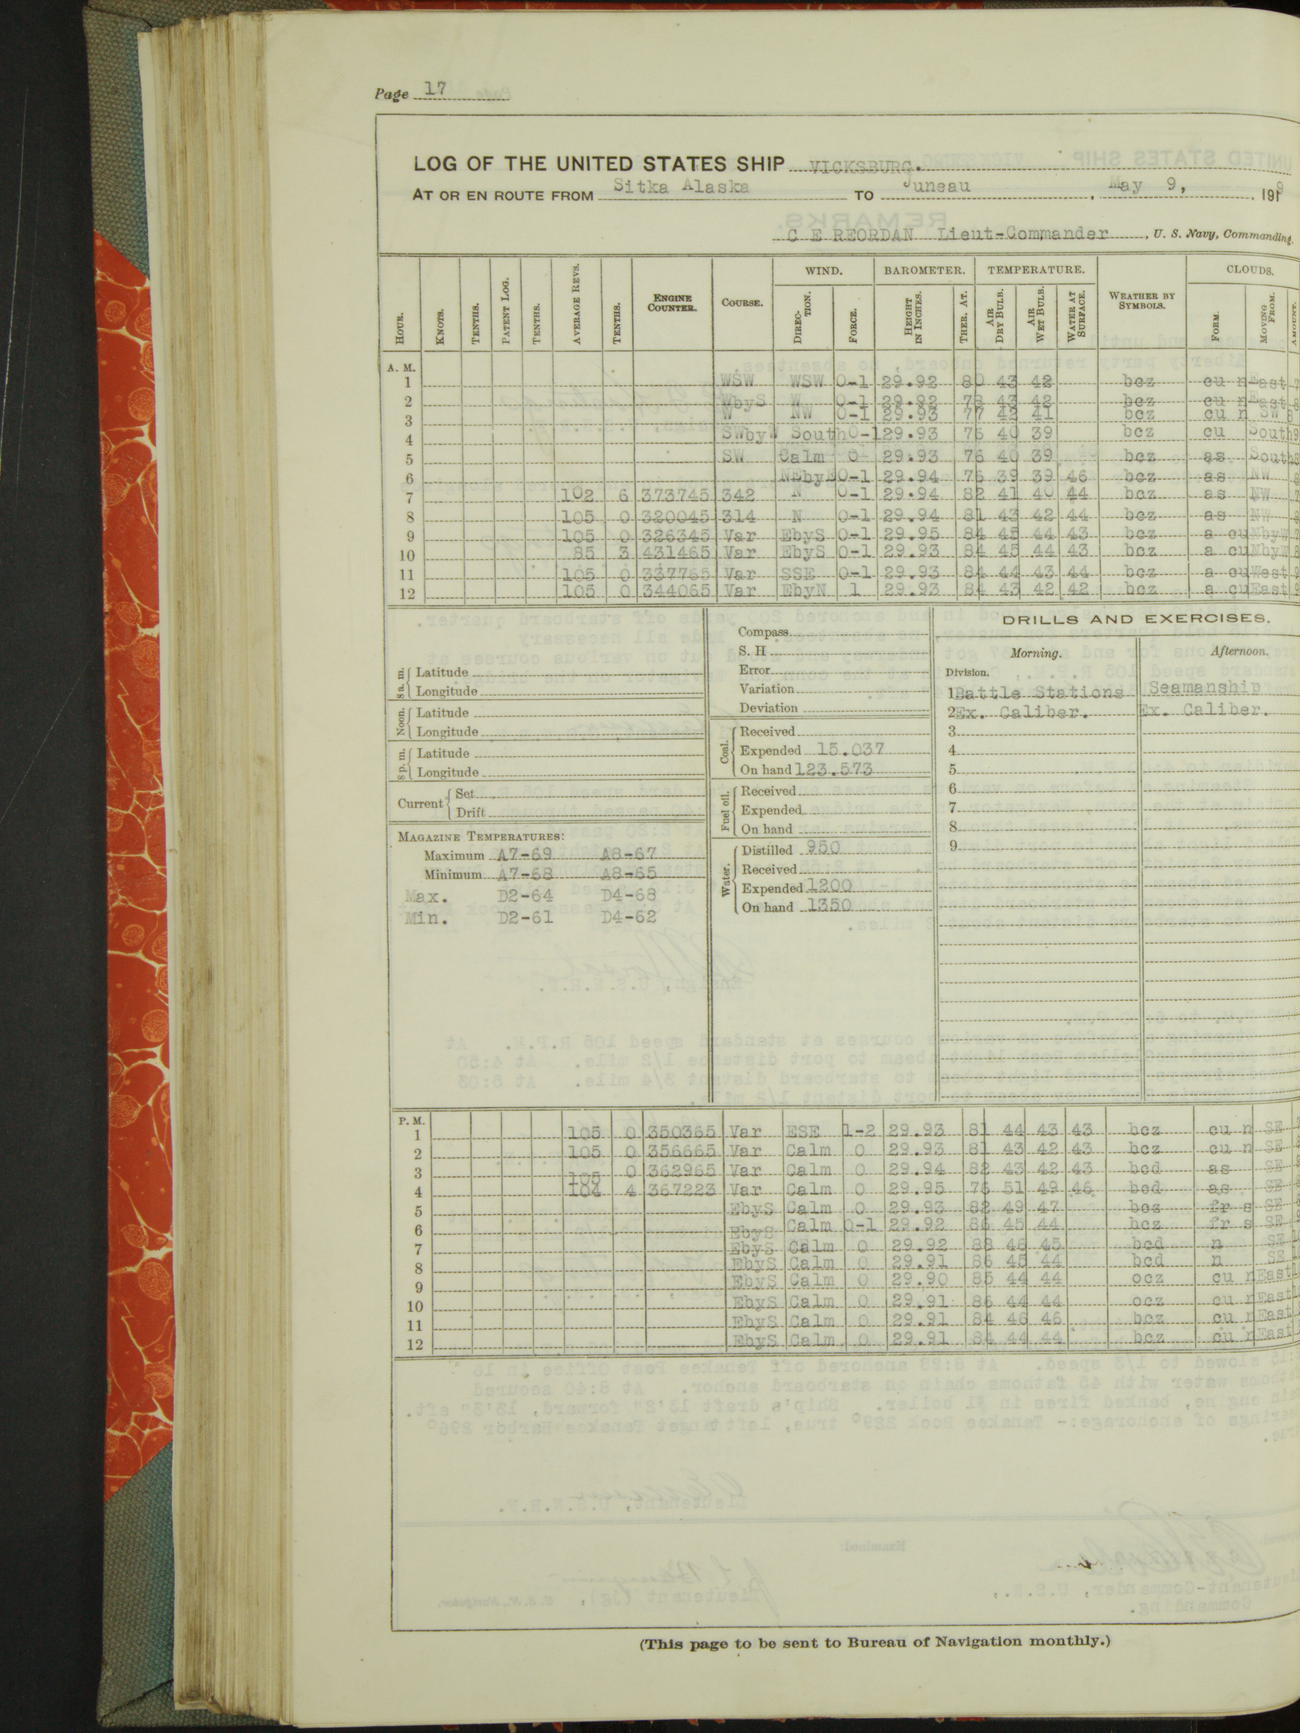 Page 17
LOG OF THE UNITED STATES SHIP VICKSBURG.
AT OR EN ROUTE FROM Sitka Alaska TO Juneau, May 9, 1919
C E REORDAN Lieut-Commander, U. S. Navy, Commanding.
WIND. BAROMETER. TEMPERATURE. CLOUDS.
HOUR. KNOTS. TENTHS. PATENT LOG. TENTHS. AVERAGE REVS. TENTHS. ENGINE COUNTER. COURSE. DIRECTION. FORCE. HEIGHT IN INCHES. THER. AT. AIR DRY BULB. AIR WET BULB. WATER AT SURFACE. WEATHER BY SYMBOLS. FORM. MOVING FROM. AMOUNT.
A. M.
1 WSW WSW 0-1 29.92 80 43 42 bcz cu n East
2 WbyS W 0-1 29.92 78 43 42 bcz cu n East
3 W NW 0-1 29.93 77 42 41 bcz cu n SW
4 SWbyW South 0-1 29.93 76 40 39 bcz cu South
5 SW Calm 0 29.93 76 40 39 bcz as South
6 NEbyE 0-1 29.94 76 39 39 46 bcz as NW
7 102 6 373745 342 N 0-1 29.94 82 41 40 44 bcz as NW
8 105 0 320045 314 N 0-1 29.94 81 43 42 44 bcz as NW
9 105 0 326345 Var EbyS 0-1 29.95 84 45 44 43 bcz a cu NbyW
10 85 3 431465 Var EbyS 0-1 29.93 84 45 44 43 bcz a cu NbyW
11 105 0 337765 Var SSE 0-1 29.93 84 44 43 44 bcz a cu West
12 105 0 344065 Var EbyN 1 29.93 84 43 42 42 bcz a cu East
8 a. m. Latitude
Longitude
Noon. Latitude
Longitude
8 p. m. Latitude
Longitude
Current Set
Drift
MAGAZINE TEMPERATURES:
Maximum A7-69 A8-67
Minimum A7-68 A8-65
Max. D2-64 D4-68
Min. D2-61 D4-62
Compass
S. H
Error
Variation
Deviation
Coal. Received
Expended 15.037
On hand 123.573
Fuel oil. Received
Expended
On hand
Water. Distilled 950
Received
Expended 1200
On hand 1350
DRILLS AND EXERCISES.
Morning. Afternoon.
Division.
1 Battle Stations Seamanship
2 Ex. Caliber. Ex. Caliber.
3
4
5
6
7
8
9
P. M.
1 105 0 350365 Var ESE 1-2 29.93 81 44 43 43 bcz cu n SE
2 105 0 356665 Var Calm 0 29.93 81 43 42 43 bcz cu n SE
3 105 0 362965 Var Calm 0 29.94 82 43 42 43 bcd as SE
4 104 4 367223 Var Calm 0 29.95 76 51 49 46 bcd as SE
5 EbyS Calm 0 29.93 82 49 47 bcz fr s SE
6 EbyS Calm 0-1 29.92 86 45 44 bcz fr s SE
7 EbyS Calm 0 29.92 88 46 45 bcd n SE
8 EbyS Calm 0 29.91 86 45 44 bcd n SE
9 EbyS Calm 0 29.90 85 44 44 ocz cu n East
10 EbyS Calm 0 29.91 86 44 44 ocz cu n East
11 EbyS Calm 0 29.91 84 46 46 bcz cu n East
12 EbyS Calm 0 29.91 84 44 44 bcz cu n East
(This page to be sent to Bureau of Navigation monthly.)